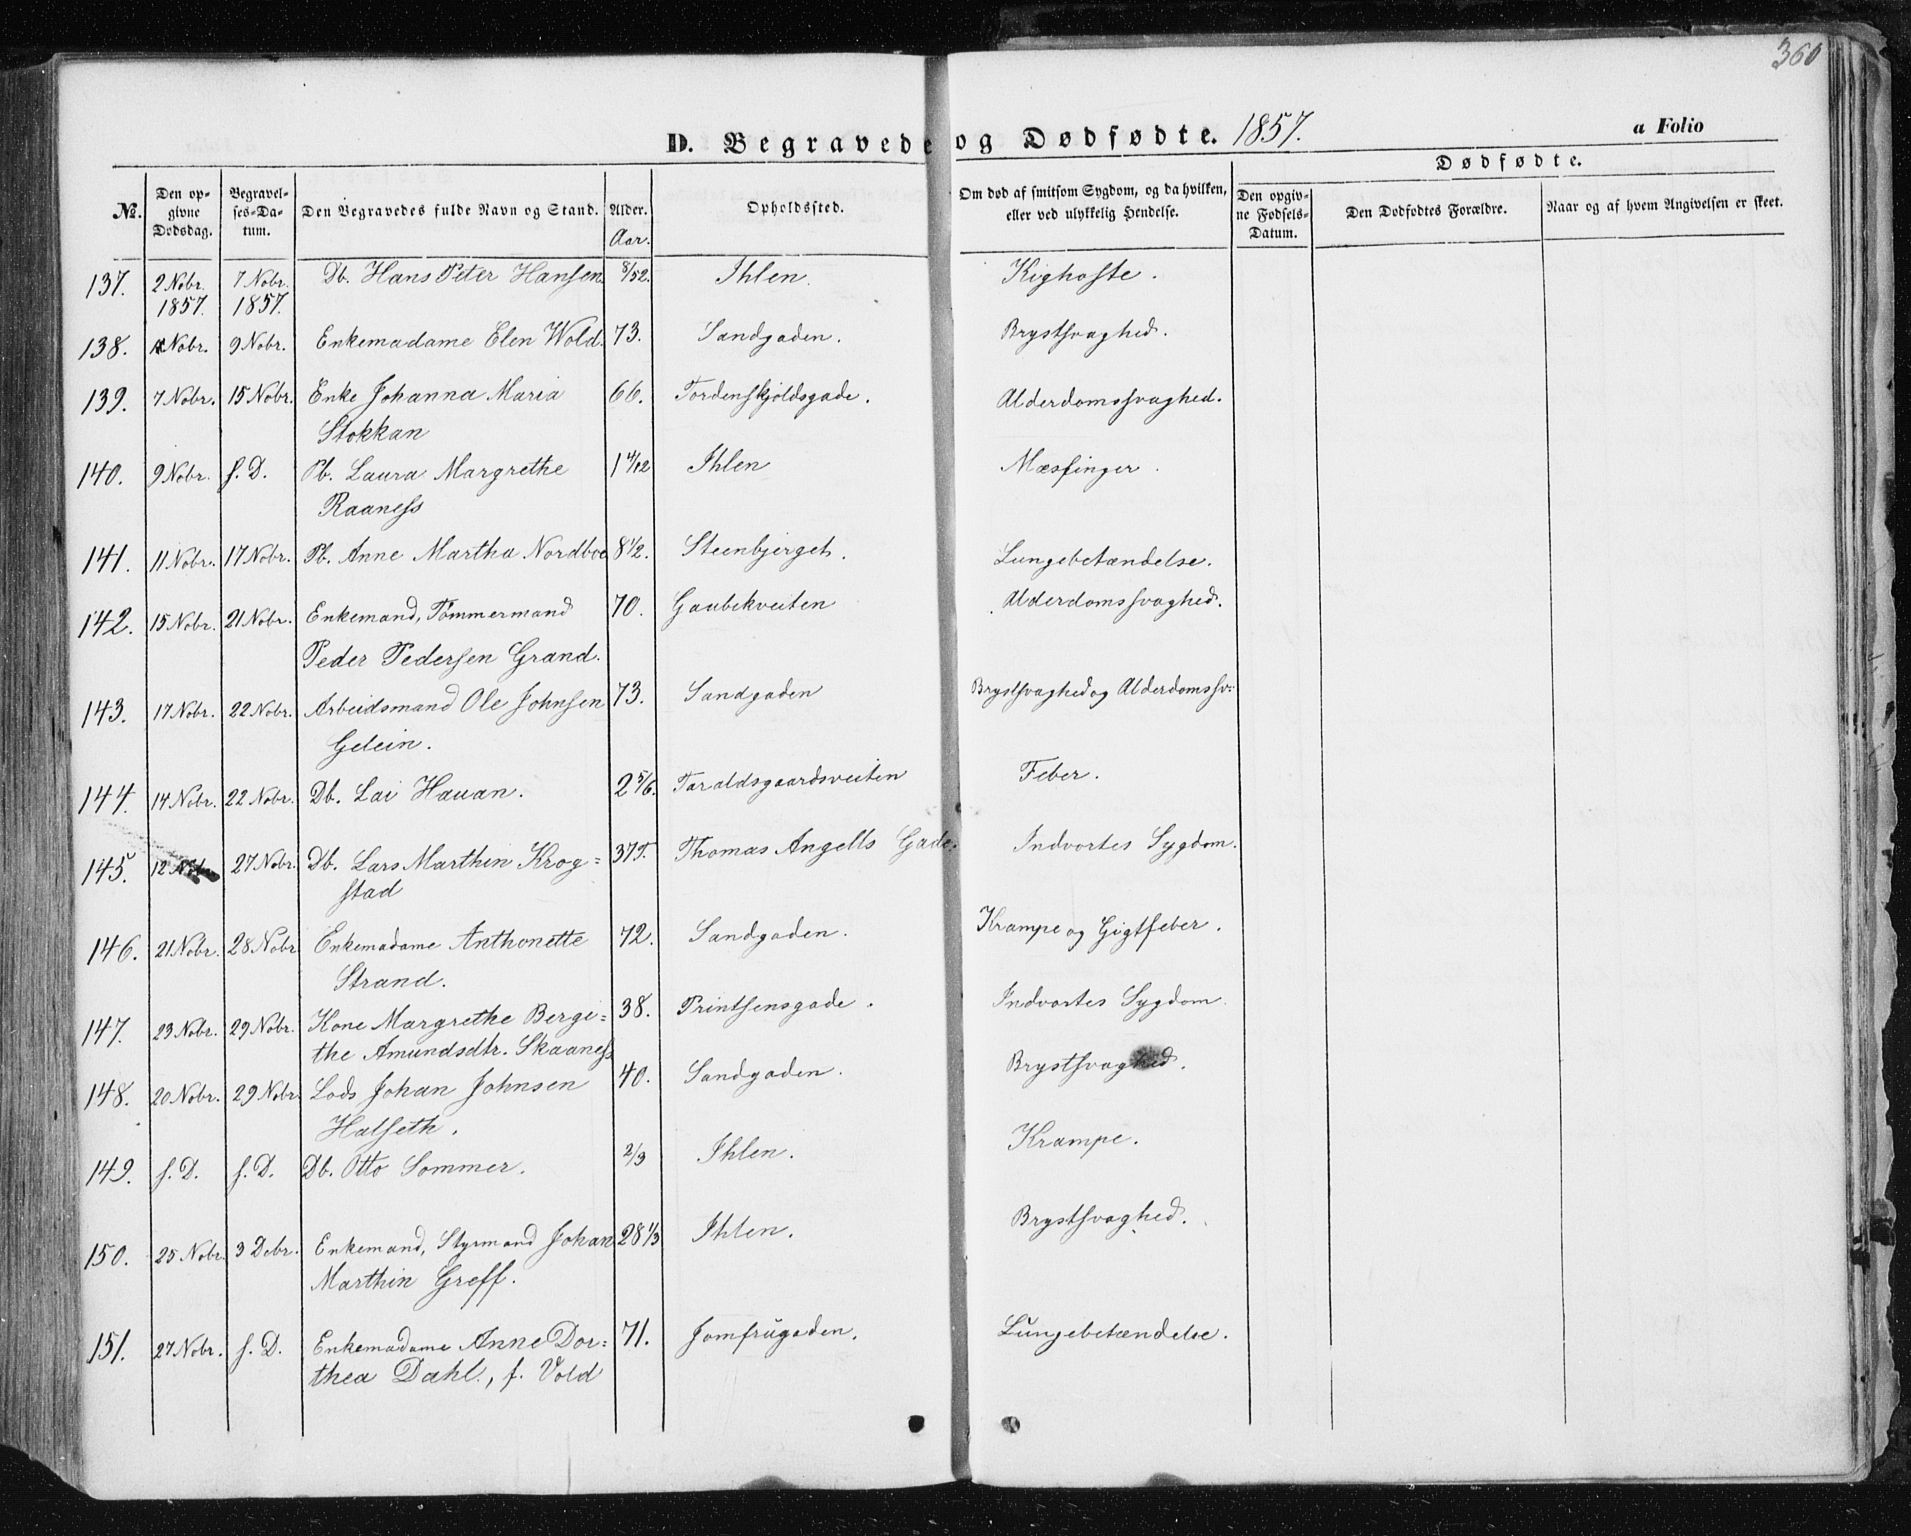 360
D. Begravede og Dødfødte. 1857. a Folio
№. Den opgivne Dødsdag. Begravelses-Datum. Den Begravedes fulde Navn og Stand. Alder. Aar. Opholdssted. Om død af smitsom Sygdom, og da hvilken, eller ved ulykkelig Hendelse. Dødfødte. Den opgivne Fødsels-Datum. Den Dødfødtes Forældre. Naar og af hvem Angivelsen er skeet.
137. 2 Nobr. 7 Nobr. Db. Hans Peter Hansen 8/52. Ihlen. Kighoste.
1857. 1857.
138. Nobr. 9 Nobr. Enkemadame Elen Wold. 73. Sandgaden. Brystsvaghed.
139. 7 Nobr. 15 Nobr. Enke Johanna Maria 66. Tordenskjoldsgade. Alderdomssvaghed.
Stokkan
140. 9 Nobr. f. D. Pb. Laura Margrethe 1 4/12 Ihlen Mæslinger.
Raaness
141. 11 Nobr. 17 Nobr. Pb. Anne Martha Nordboe 8 1/2. Steenbjerget. Lungebetændelse.
142. 15 Nobr. 21 Nobr. Enkemand, Tømmermand 70. Gaubekveiten Alderdomssvaghed.
Peder Pedersen Grand.
143. 17 Nobr. 22 Nobr. Arbeidsmand Ole Johnsen 73. Sandgaden Brystsvaghed og Alderdomssv:
Gelein.
144. 14 Nobr. 22 Nobr. Db. Lai Hauan. 2 5/6. Taraldsgaardsveiten Feber.
145. 12 27 Nobr. Db. Lars Marthin Krog= 37 Thomas Angells Gade. Indvortes Sygdom.
stad
146. 21 Nobr. 28 Nobr Enkemadame Anthonette 72. Sandgaden. Krampe og Gigtfeber.
Strand.
147. 23 Nobr. 29 Nobr. Kone Margrethe Bergi= 38. Printsensgade. Indvortes Sygdom.
the Amundsdtr. Skaaness
148. 20 Nobr. 29 Nobr. Lods Johan Johnsen 40. Sandgaden. Brystsvaghed.
Halseth.
149. f. D. f. D. Db. Otto Sommer. 2/3 Ihlen. Krampe.
150. 25 Nobr. 3 Debr. Enkemand, Styrmand Johan 28 1/3 Ihlen. Brystsvaghed.
Marthin Greff.
151. 27 Nobr. f. D. Enkemadame Anne Dor= 71. Jomfrugaden. Lungebetændelse.
thea Dahl., f. Vold